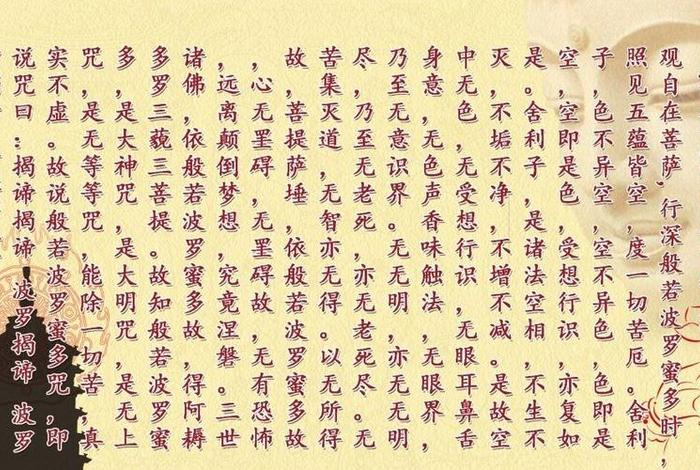 观自在菩萨,行深般若波罗蜜多时,
照见五蕴皆空,度一切苦厄。舍利
子,色不异空,空不异色,色即是
空,空即是色,受想行识,亦复如
是。舍利子,是诸法空相,不生不
灭,不垢不净,不增不减。是故空
中无色,无受想行识,无眼耳鼻舌
身意,无色声香味触法,无眼界,
乃至无意识界。无无明,亦无无明
尽,乃至无老死,亦无老死尽。无
苦集灭道,无智亦无得。以无所得
故,菩提萨埵,依般若波罗蜜多故
,心无罣碍,无罣碍故,无有恐怖
,远离颠倒梦想,究竟涅磐。三世
诸佛,依般若波罗蜜多故,得阿耨
多罗三藐三菩提。故知般若波罗蜜
多,是大神咒,是大明咒,是无上
咒,是无等等咒,能除一切苦,真
实不虚。故说般若波罗蜜多咒,即
说咒曰:揭谛揭谛 波罗揭谛 波罗